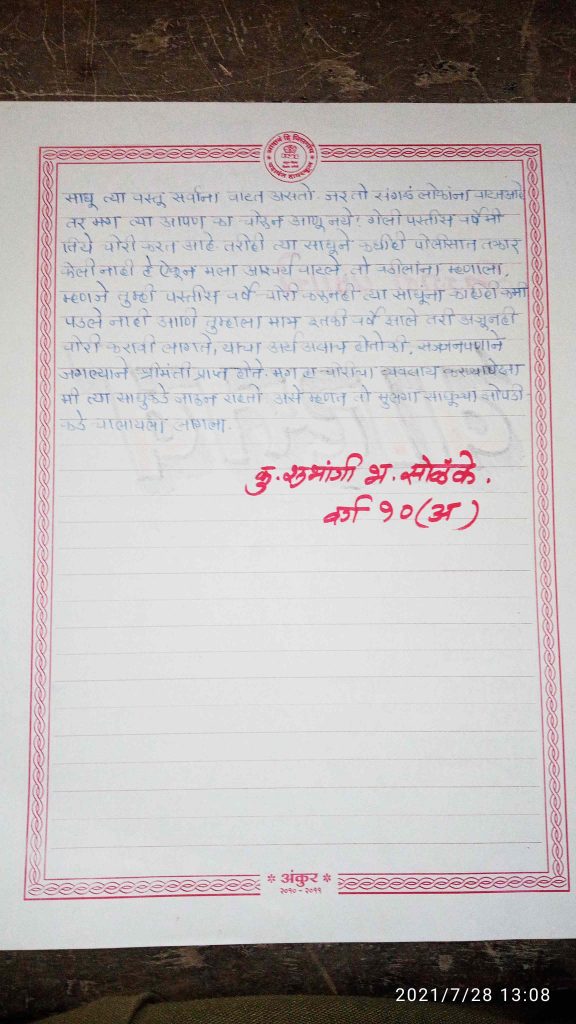 साधू त्या वस्तू सर्वांना वाटत असतो. जर तो सगळं लोकांना वाटत आहे
तर मग त्या आपण का चोरून आणू नये? गेली पस्तीस वर्षे मी
तिथे चोरी करत आहे. तरीही त्या साधूने कधीही पोलीसात तक्रार
केली नाही हे ऐकून मला आश्चर्य वाटले. तो वडीलांना म्हणाला,
म्हणजे तुम्ही पस्तीस वर्षे चोरी करूनही त्या साधूना काहीही कमी
पडले नाही आणि तुम्हाला मात्र इतकी वर्षे झाले तरी अजूनही
चोरी करावी लागते, याचा अर्थ असाच होतो की, सज्जनपणाने
जगल्याने श्रीमंती प्राप्त होते. मग हा चोरीचा व्यवसाय करण्यापेक्षा
मी त्या साधुकडे जाऊन राहतो असे म्हणत तो मुलगा साधूच्या झोपडी-
कडे चालायला लागला.
कु. शुभांगी भ. सोळंके.
वर्ग १०(अ)
* अंकुर *
२०१० - २०११
2021/7/28 13:08